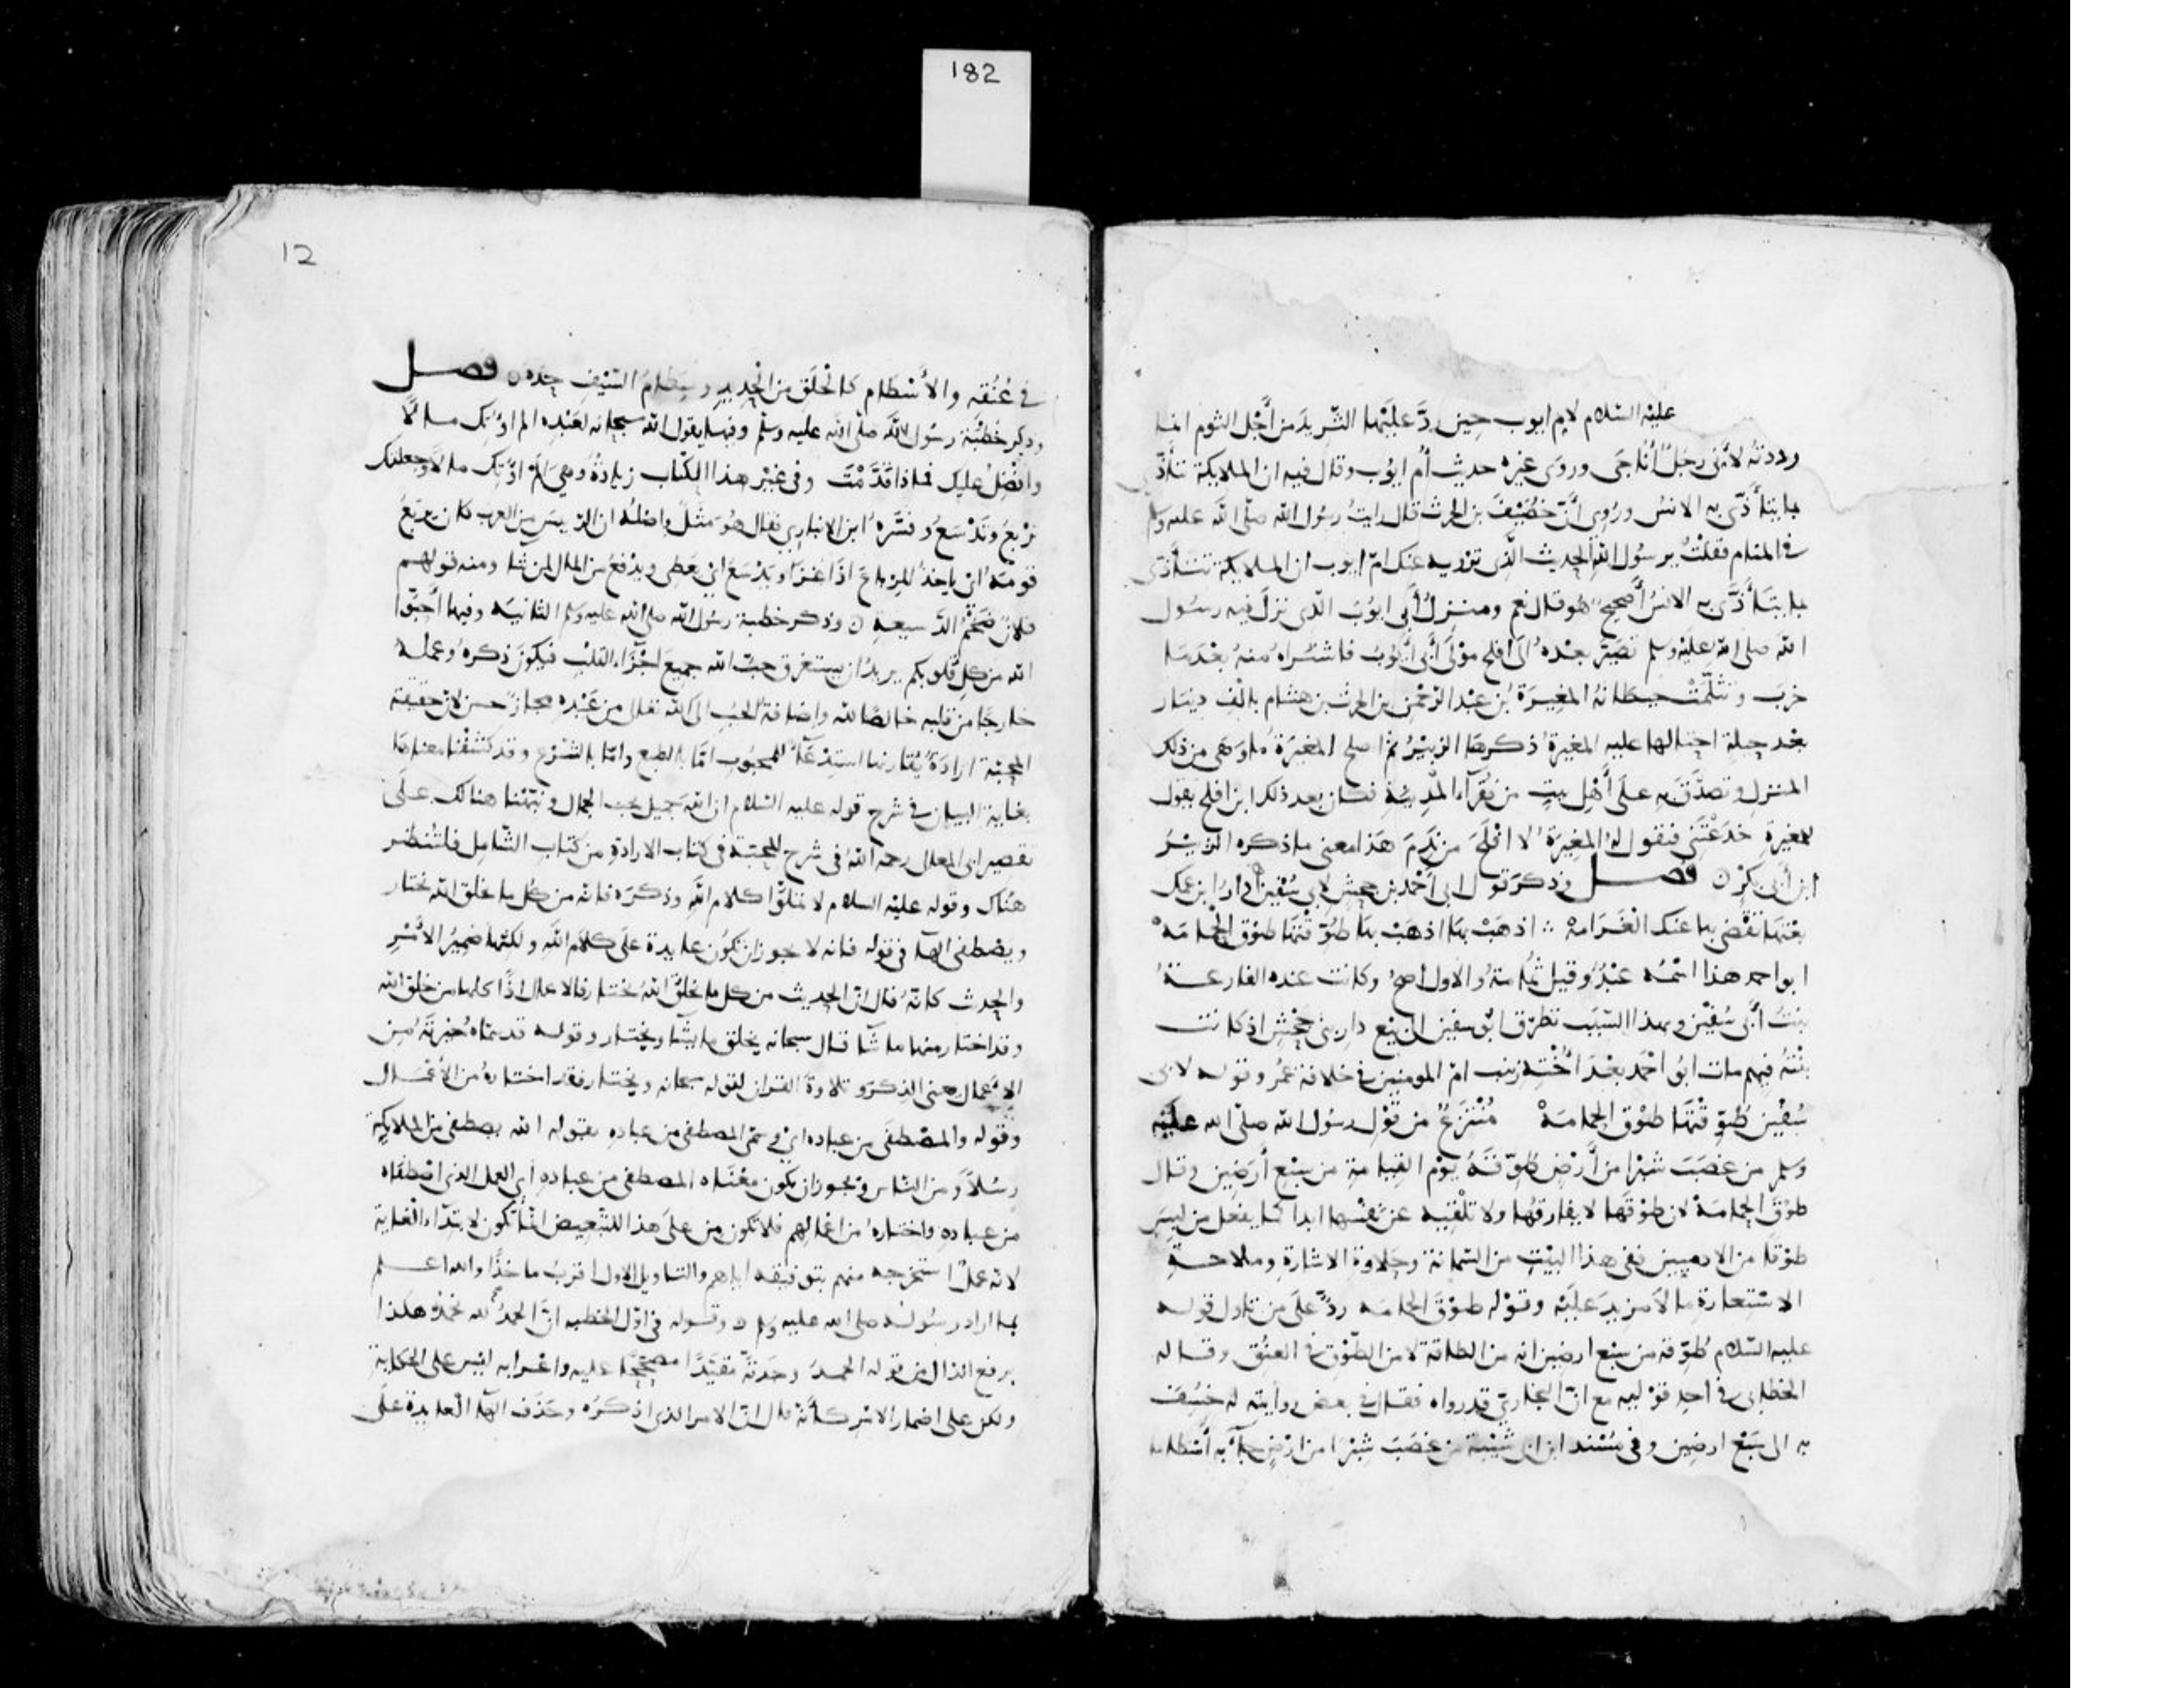 182
عليه السلام لام ايوب حين ردّ عليها الثريد من أجل الثوم انما
رددته لأنى رجل أناجى وروى غيره حديث أم ايوب وقال فيه ان الملايكة تتأذى
بما يتأذّى به الانس وروى أنّ خصيف بن الحرث قال رايت رسول الله صلى الله عليه وسلم
فى المنام فقلت يرسول الله الحديث الذى ترويه عنك امّ ايوب ان الملايكة تتأذى
بما يتأذّى به الانس أصحيح هو قال نعم ومنزل أبى ايوب الذى نزل فيه رسول
الله صلى الله عليه وسلم تصيّر بعده الى افلح مولى أبى أيوب فاشتراه منه بعدما
خرب وتثلّمت حيطانه المغيرة بن عبد الرحمن بن الحرث بن هشام بالف دينار
بعد حيلة احتالها عليه المغيرة ذكرها الزبير ثم اصلح المغيرة ما وهى من ذلك
المنزل وتصدّق به على أهل بيت من فقرآء المدينة فكان بعد ذلك ابن افلح يقول
للمغيرة خدعتنى فيقول له المغيرة لا افلح من ندم هذا معنى ما ذكره الزبير
ابن أبى بكر ن فصل وذكر قول ابى أحمد بن جحش لابى سفين أدار ابن عمك
بعتها تقضى بها عنك الغرامه ∴ اذهب بها اذهب بها طوّقتها طوق الحمامه
ابو احمد هذا اسمه عبد وقيل ثمامة والاول أصح وكانت عنده الفارعة
بنت أبى سفين وبهذا السبب تطرّق ابو سفين الى بيع دار بنى جحش اذ كانت
بنته فيهم مات ابو أحمد بعد اخته زينب امّ المومنين فى خلافة عمر وقوله لابى
سفين طوّقتها طوق الحمامه منتزع من قول رسول الله صلى الله عليه
وسلم من غصب شبرا من أرض طوّقه يوم القيامة من سبع أرضين وقال
طوق الحمامة لان طوقها لا يفارقها ولا تلقيه عن نفسها ابدا كما يفعل من لبس
طوقا من الادميين ففى هذا البيت من السمانة وحلاوة الاشارة وملاحة
الاستعارة ما لا مزيد عليه وقوله طوق الحمامه ردّ على من تاول قوله
عليه السلام طوّقه من سبع ارضين انه من الطاقة لا من الطوق فى العنق وقاله
الخطابى فى احد قوليه مع انّ البخارى قد رواه فقال فى بعض روايته له خسف
به الى سبع ارضين وفى مسند ابن ابى شيبة من غصب شبرا من ارض جآ به أسطاما
12
فى عنقه والأسطام كالحلق من الحديد وسطام السيف حده ن فصل
وذكر خطبة رسول الله صلى الله عليه وسلم وفيها يقول الله سبحانه لعبده الم اوتك مالا
وأفضل عليك فماذا قدّمت وفى غير هذا الكتاب زيادة وهى الم اوتك مالا وجعلتك
تربع وتدسع وفسّره ابن الانبارى فقال هو مثل واصله ان الرييس من العرب كان يربع
قومه اى ياخذ المرباع اذا غزا ويدسع اى يعطى ويدفع من المال لمن شا ومنه قولهم
فلان ضخم الدسيعة ن وذكر خطبة رسول الله صلى الله عليه وسلم الثانية وفيها أحبّوا
الله من كل قلوبكم يريد ان يستغرق حبّ الله جميع اجزآء القلب فيكون ذكره وعمله
خارجا من قلبه خالصا لله واضافة الحب الى الله تعالى من عبده مجاز حسن لان حقيقة
المحبّة ارادة يقارنها استدعآ للمحبوب امّا بالطبع وامّا بالشرع وقد كشفنا معناها
بغاية البيان فى شرح قوله عليه السلام ان الله جميل يحب الجمال ونبّهنا هنالك على
تقصير ابى المعالى رحمه الله فى شرح المحبّة فى كتاب الارادة من كتاب الشامل فلتنظر
هناك وقوله عليه السلام لا تملّوا كلام الله وذكره فانه من كل ما خلق الله يختار
ويصطفى الهآ فى قوله فانه لا يجوز ان تكون عايدة على كلام الله ولكنها ضمير الأمر
والحديث كانه قال انّ الحديث من كل ما يخلق الله يختار فالاعمال اذًا كلها من خلق الله
وقد اختار منها ما شآ قال سبحانه يخلق ما يشآ ويختار وقوله قد سمّاه خيرته من
الاعمال يعنى الذكر وتلاوة القران لقوله سبحانه ويختار فقد اختاره من الأعمال
وقوله والمصطفى من عباده اى وسمّى المصطفى من عباده بقوله الله يصطفى من الملايكة
رسلا ومن الناس ويجوز ان يكون معناه المصطفى من عباده أى العمل الذى اصطفاه
من عباده واختاره من اعمالهم فلا تكون من على هذا للتبعيض انما تكون لابتدآء الغاية
لانه عمل استخرجه منهم بتوفيقه اياهم والتاويل الاول اقرب ماخذا والله اعلم
بما اراد رسوله صلى الله عليه وسلم ن وقوله فى اوّل الخطبة انّ الحمد لله نحمده هكذا
برفع الدال من قوله الحمد وجدته مقيّدا مصححا عليه واعرابه ليس على الحكاية
ولكن على اضمار الامر كأنه قال انّ الامر الذى اذكره وحذف الهآ العايدة على